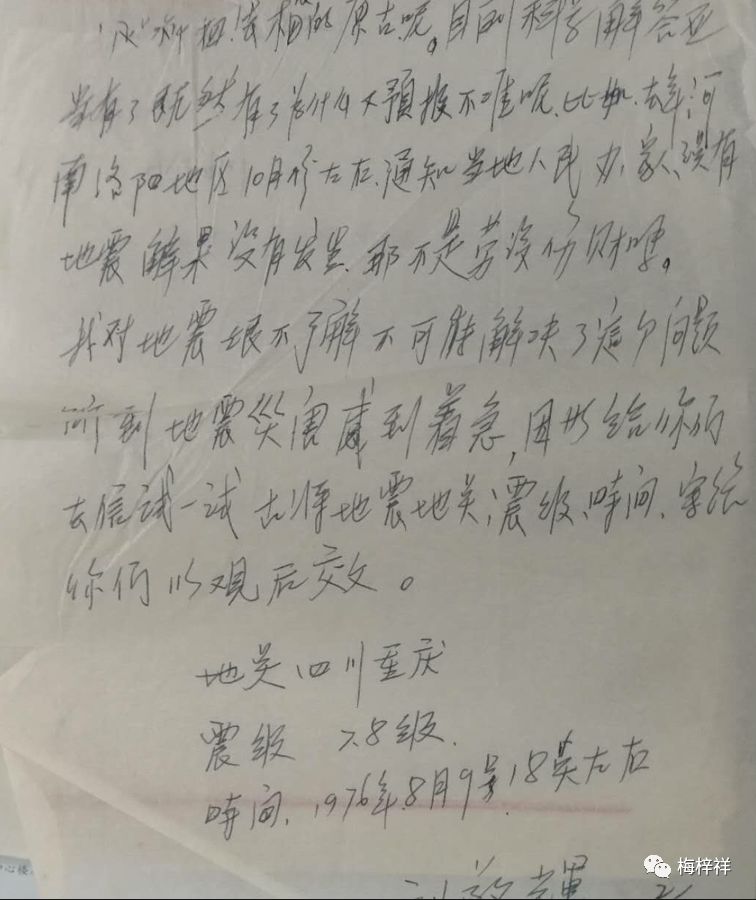 原去呢。目前科学解答还
没有了既然有了为什么不預报不准呢、比如、去年河
南洛阳地区10月份左右、通知当地人民办、家、误有
地震解果没有发生、那不是劳没伤财嗎。
我对地震坂不了解不可能解决了這个问题
听到地震災害感到着急,因此给你们
去信试一试 地震地关、震级、時间、寄给
你们以观后效。
地关四川重庆
震级 7.8级.
時间、1976年8月9号、18关左右
梅梓祥